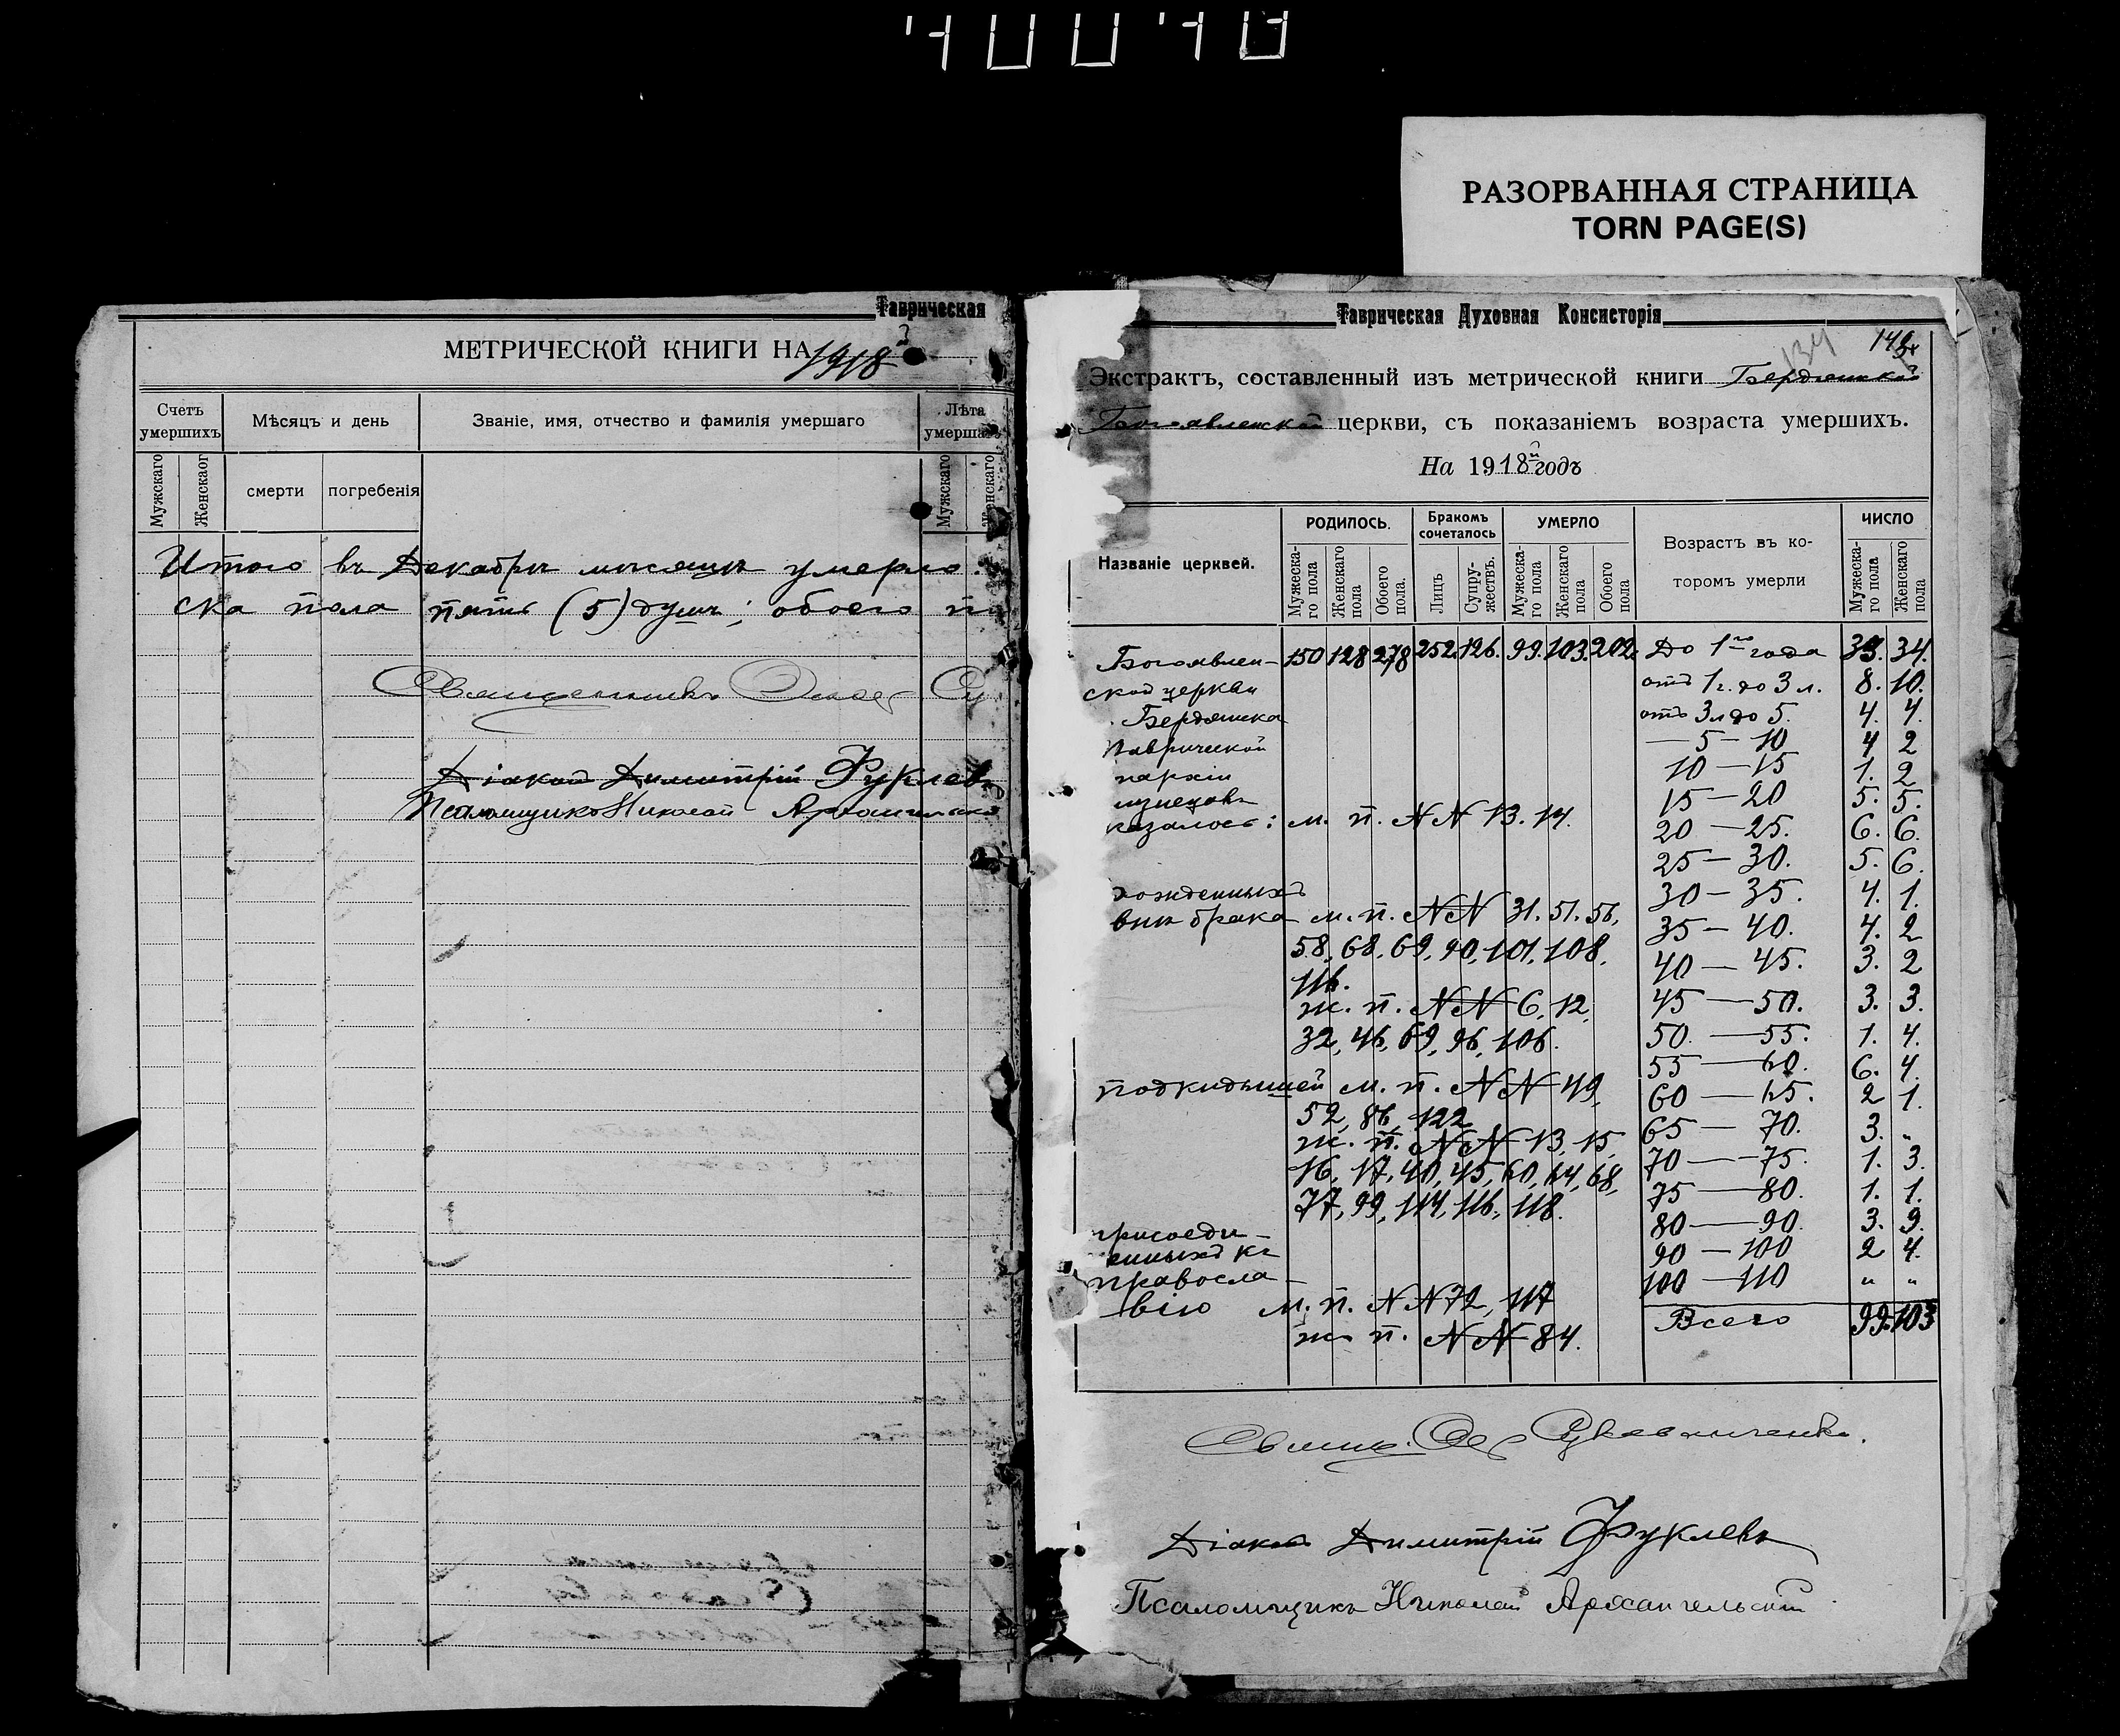 РАЗОРВАННАЯ СТРАНИЦА
TORN PAGE(S)
Таврическая
МЕТРИЧЕСКОЙ КНИГИ НА 1918
Счетъ умершихъ
Мѣсяцъ и день
Званіе, имя, отчество и фамилія умершаго
Лѣта умершаго
Мужскаго
Женскаог
смерти
погребенія
Мужскаго
Женскаго
Итого въ Декабрѣ мѣсяцѣ умерло
ска пола пять (5) душъ; обоего по
Священникъ
Діаконъ Димитрій Фуклевъ
Псаломщикъ Николай Архангельскі
Таврическая Духовная Консисторія
134
Экстрактъ, составленный изъ метрической книги Бердянской
Богоявленской церкви, съ показаніемъ возраста умершихъ.
На 1918й годъ
Названіе церквей.
РОДИЛОСЬ.
Бракомъ сочеталось
УМЕРЛО
Возрастъ въ ко-
торомъ умерли
ЧИСЛО
Мужеска-го пола
Женскаго пола
Обоего пола.
Лицъ
Супру-жествъ.
Мужеска-го пола
Женскаго пола
Обоего пола
Мужеска-го пола
Женскаго пола
Богоявлен- 150 128 278 252. 126. 99. 103. 202. До 1го года 33. 34.
ской церкви отъ 1 г. до 3 л. 8. 10.
Бердянска отъ 3 л до 5. 4. 4.
Таврической — 5 — 10 4 2
пархіи 10 — 15 1. 2
15 — 20 5. 5.
казалось: м. п. NN 13. 14. 20 — 25. 6. 6.
25 — 30. 5. 6.
рожденныхъ 30 — 35. 4. 1.
внѣ брака м. п. NN 31. 51. 56, 35 — 40. 4. 2
58, 68, 69, 90, 101, 108, 40 — 45. 3. 2
116.
ж. п. NN 6, 12, 45 — 50. 3. 3.
32, 46, 69, 96, 106. 50. — 55. 1. 4.
55 — 60. 6. 4.
подкидышей м. п. NN 49, 60 — 65. 2 1.
52, 86, 122
ж. п. NN 13, 15, 65 — 70. 3. „
16, 17, 40, 45, 60, 64, 68, 70 — 75. 1. 3.
77, 99, 114, 116, 118. 75 — 80. 1. 1.
присоеди- 80 — 90. 3. 9.
енныхъ къ 90 — 100 2 4.
правосла- 100 — 110 „ „
вію м. п. NN 72, 117
ж. п. NN 84. Всего 99. 103
Діаконъ Димитрій Фуклевъ
Псаломщикъ Николай Архангельскій